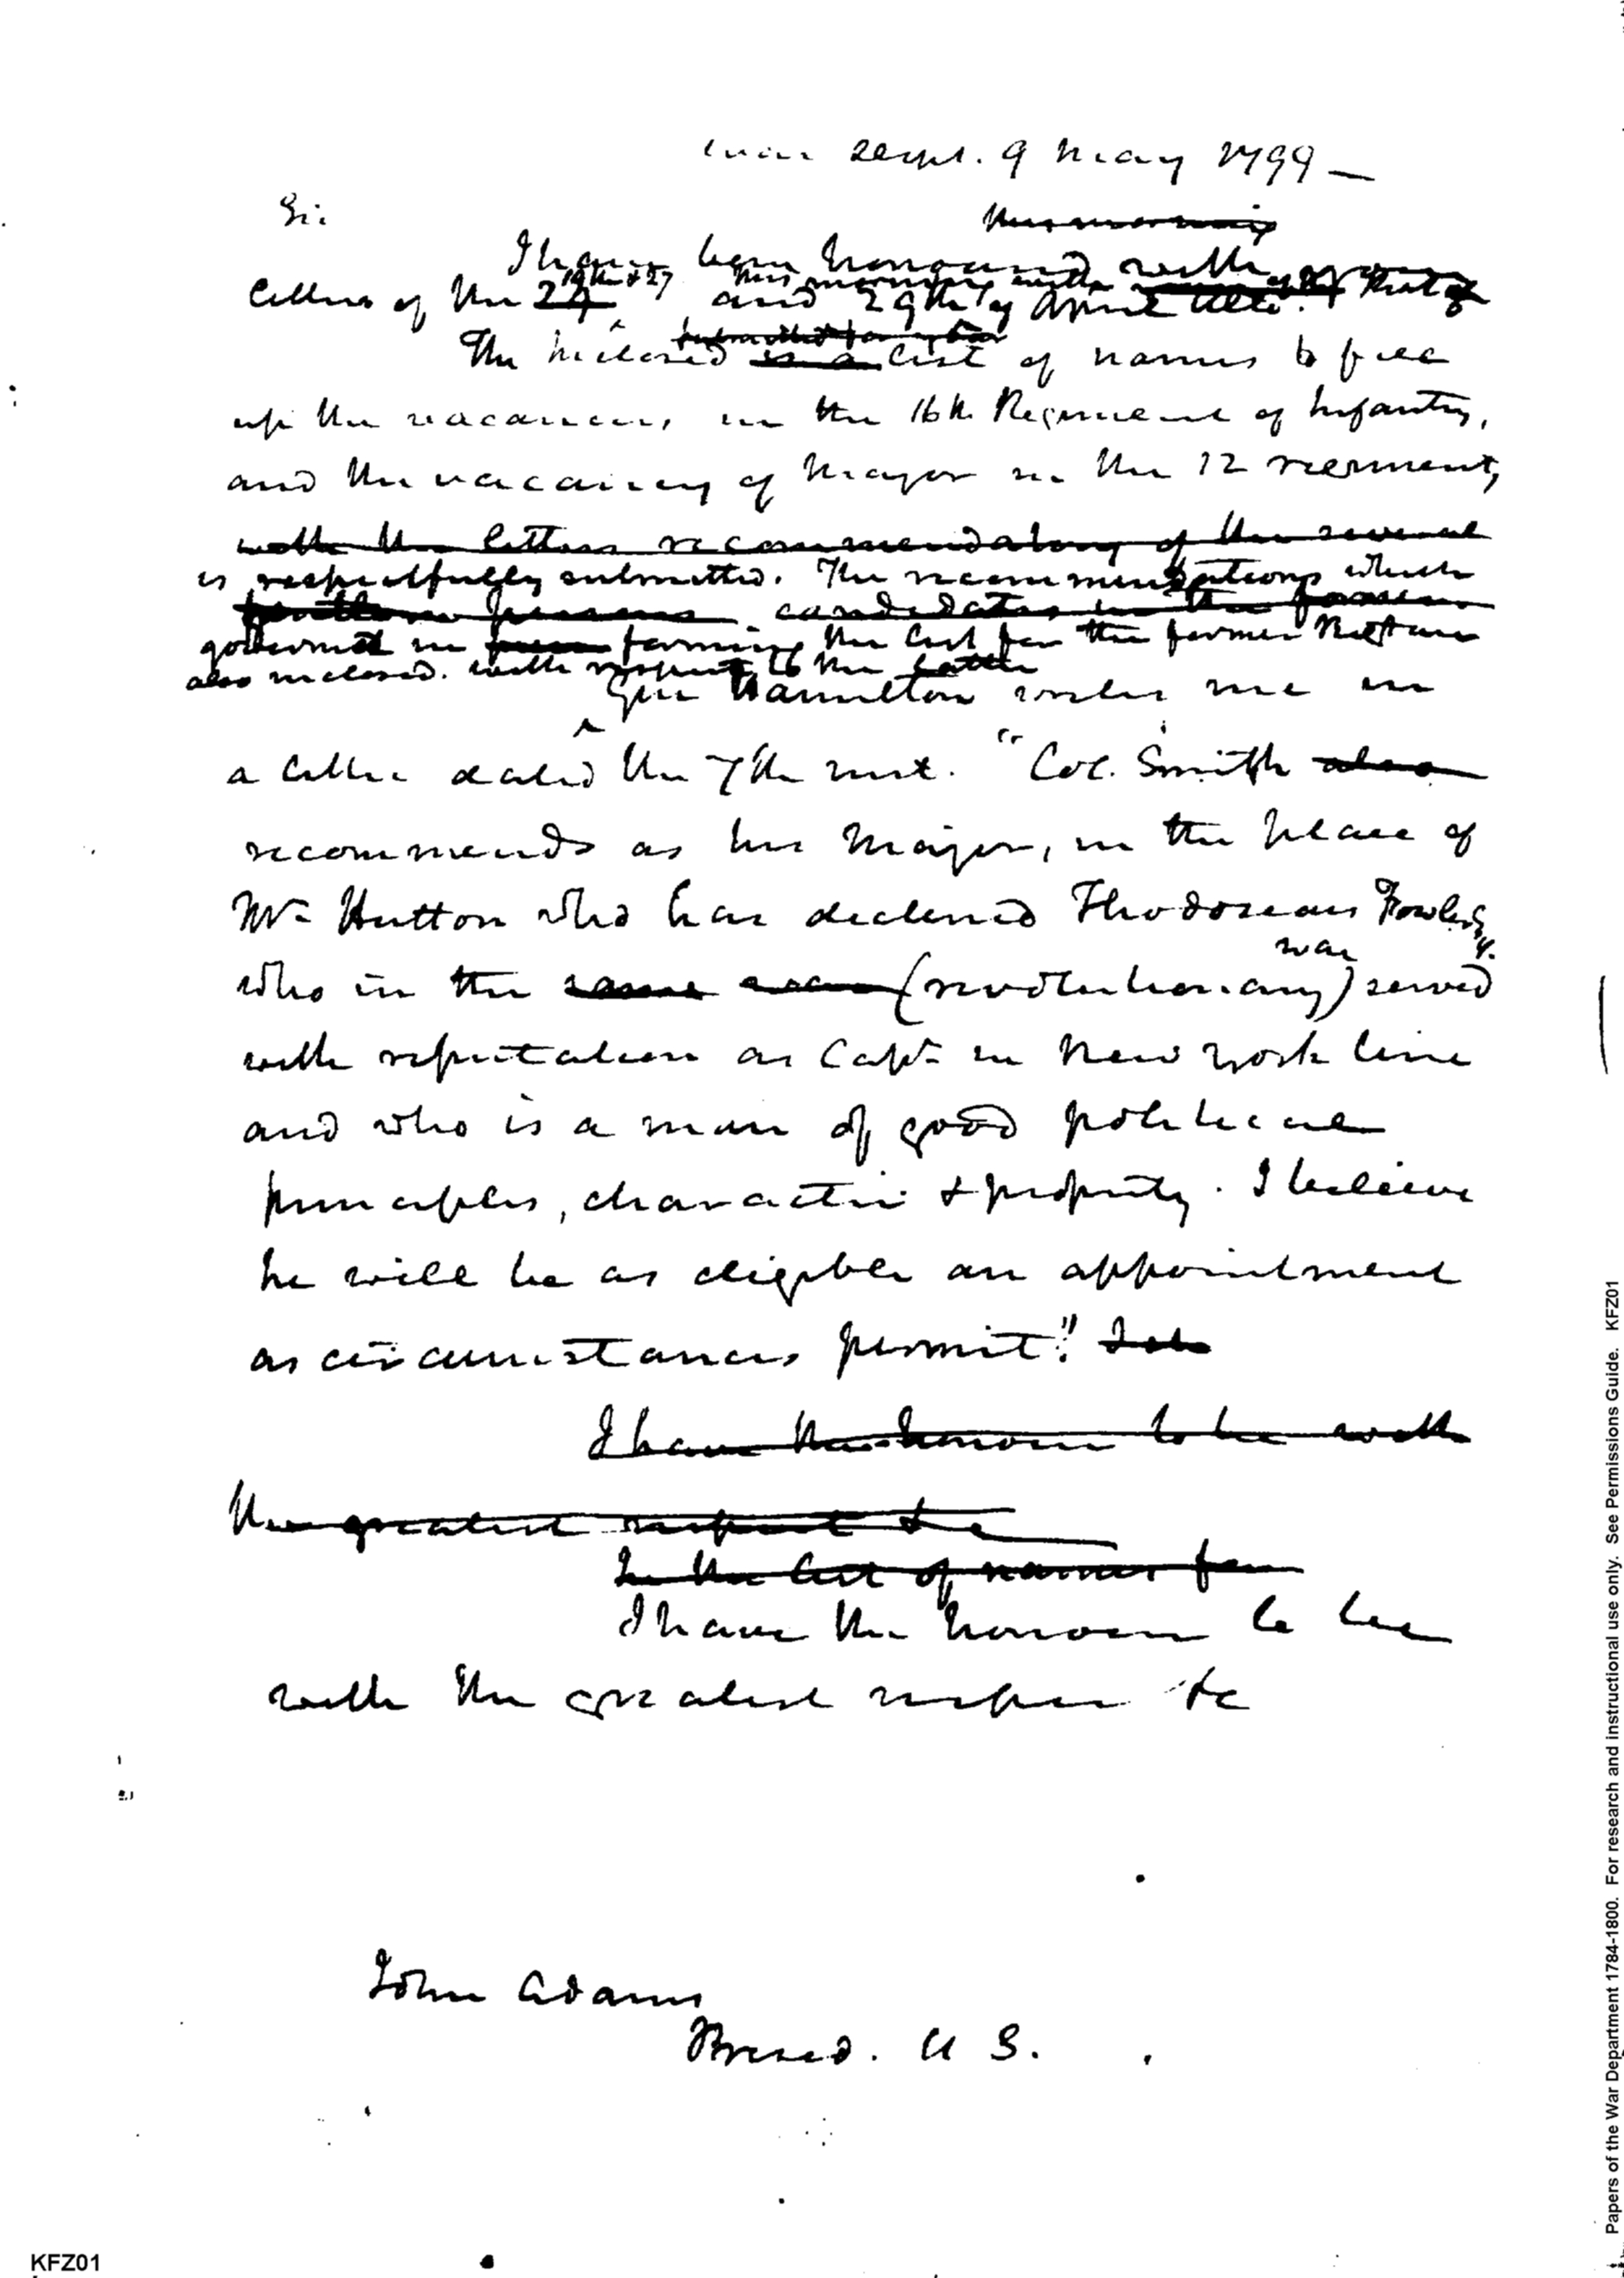 War Dept. 9 May 1799 —
Sir
this morning
I have been honoured with your
19th & 27 this morning with that of
letters of the 24 and 29th of April ulto.
submitted for
The inclosed is a list of names to fill
up the vacancies in the 16th Regiment of Infantry,
and the vacancy of Major in the 12 regiment,
with the letters recommendatory of the several
is respectfully submitted. The recommendations which
persons candidates in the former
governed in forming the list for the former Regt are
also inclosed. with respect to the latter
Gen Hamilton writes me in
a letter dated the 7th inst. "Col. Smith also
recommends as his Major, in the place of
Mr. Hutton who has declined Theodosius Fowler,
war
who in the same war (revolutionary) served
with reputation as Capt. in New York line
and who is a man of good political
principles, character & property. I believe
he will be as eligible an appointment
as circumstances permit."
I have the honour to be with
the greatest respect &c
In the list of names for
I have the honour to be
with the greatest respect &c
John Adams
Presed. U S.
KFZ01
Papers of the War Department 1784-1800. For research and instructional use only. See Permissions Guide. KFZ01